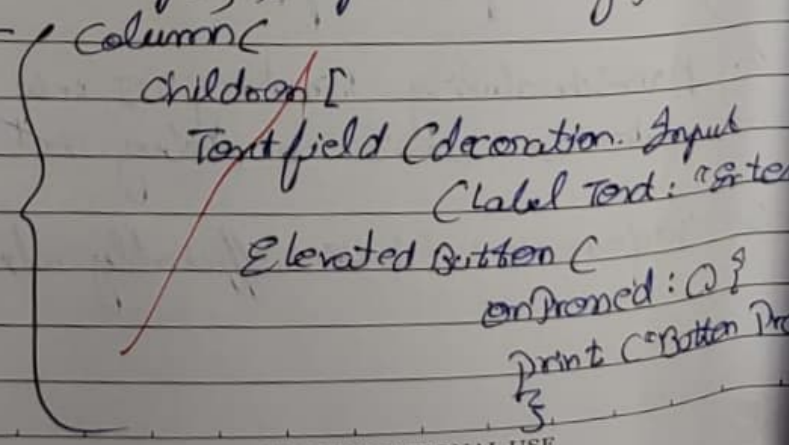 Column(
Children [
Textfield (decoration. Input
(label Text: "Ente
Elevated Button (
onPressed: () {
print ("Botton Pre
}
USE